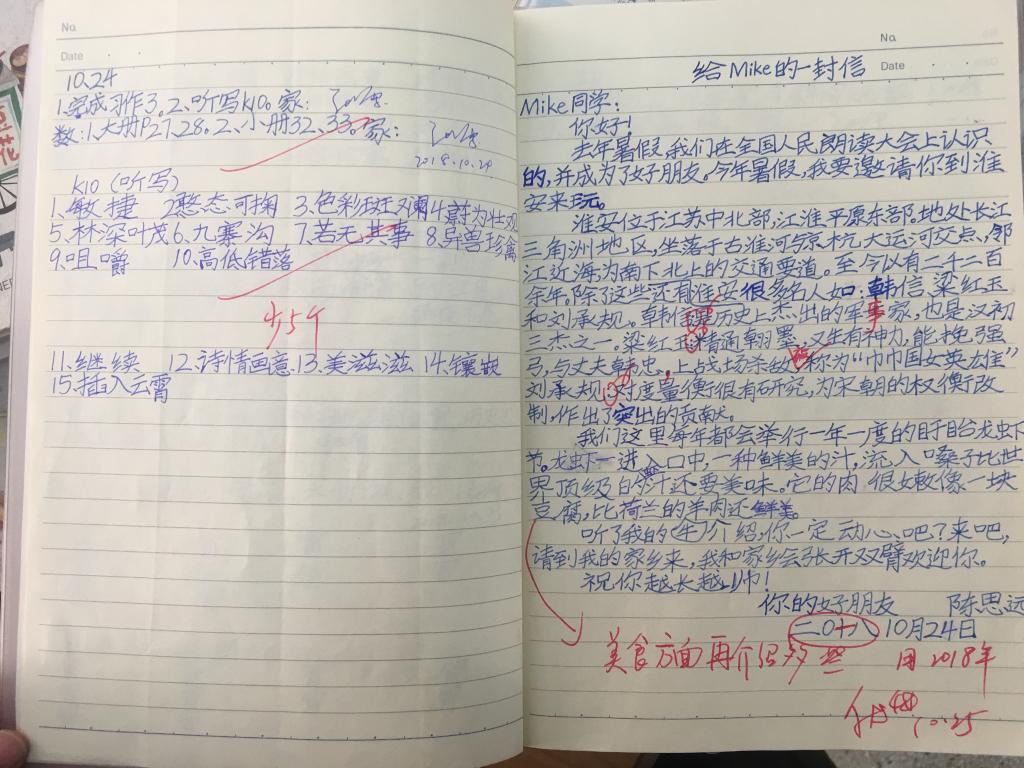 No.
Date
10.24
1.完成习作3。2、听写K10。家:
数:1、大册P27、28。2、小册32、33。家:
2018.10.24
K10(听写)
1.敏捷 2憨态可掬 3.色彩斑斓 4.蔚为壮观
5.林深叶茂 6.九寨沟 7.若无其事 8.异兽珍禽
9.咀嚼 10.高低错落
少5个
11.继续 12.诗情画意 13.美滋滋 14.镶嵌
15.插入云霄
No.
给Mike的一封信 Date
Mike同学:
你好!
去年暑假,我们在全国人民朗读大会上认识
的,并成为了好朋友。今年暑假,我要邀请你到淮
安来玩。
淮安位于江苏中北部,江淮平原东部,地处长江
三角洲地区,坐落于古淮河与京杭大运河交点,邻
江近海,为南下北上的交通要道。至今以有二千二百
余年。除了这些还有淮安很多名人如:韩信、梁红玉
和刘承规。韩信是历史上杰出的军事家,也是汉初
三杰之一,梁红玉精通翰墨,又生有神力,能挽强
弓,与丈夫韩忠,上战场杀敌,称为“巾帼女英雄”
刘承规,对度量衡很有研究,为宋朝的权衡改
制,作出了突出的贡献。
我们这里每年都会举行一年一度的盱眙龙虾
节。龙虾一进入口中,一种鲜美的汁,流入嗓子比世
界顶级的汁还要美味。它的肉很嫩像一块
豆腐,比荷兰的羊肉还鲜美。
听了我的介绍,你一定动心吧?来吧,
请到我的家乡来,我和家乡会张开双臂欢迎你。
祝你越长越帅!
你的好朋友 陈思远
二0十八 10月24日
美食方面再介绍多些 用2018年
10.25